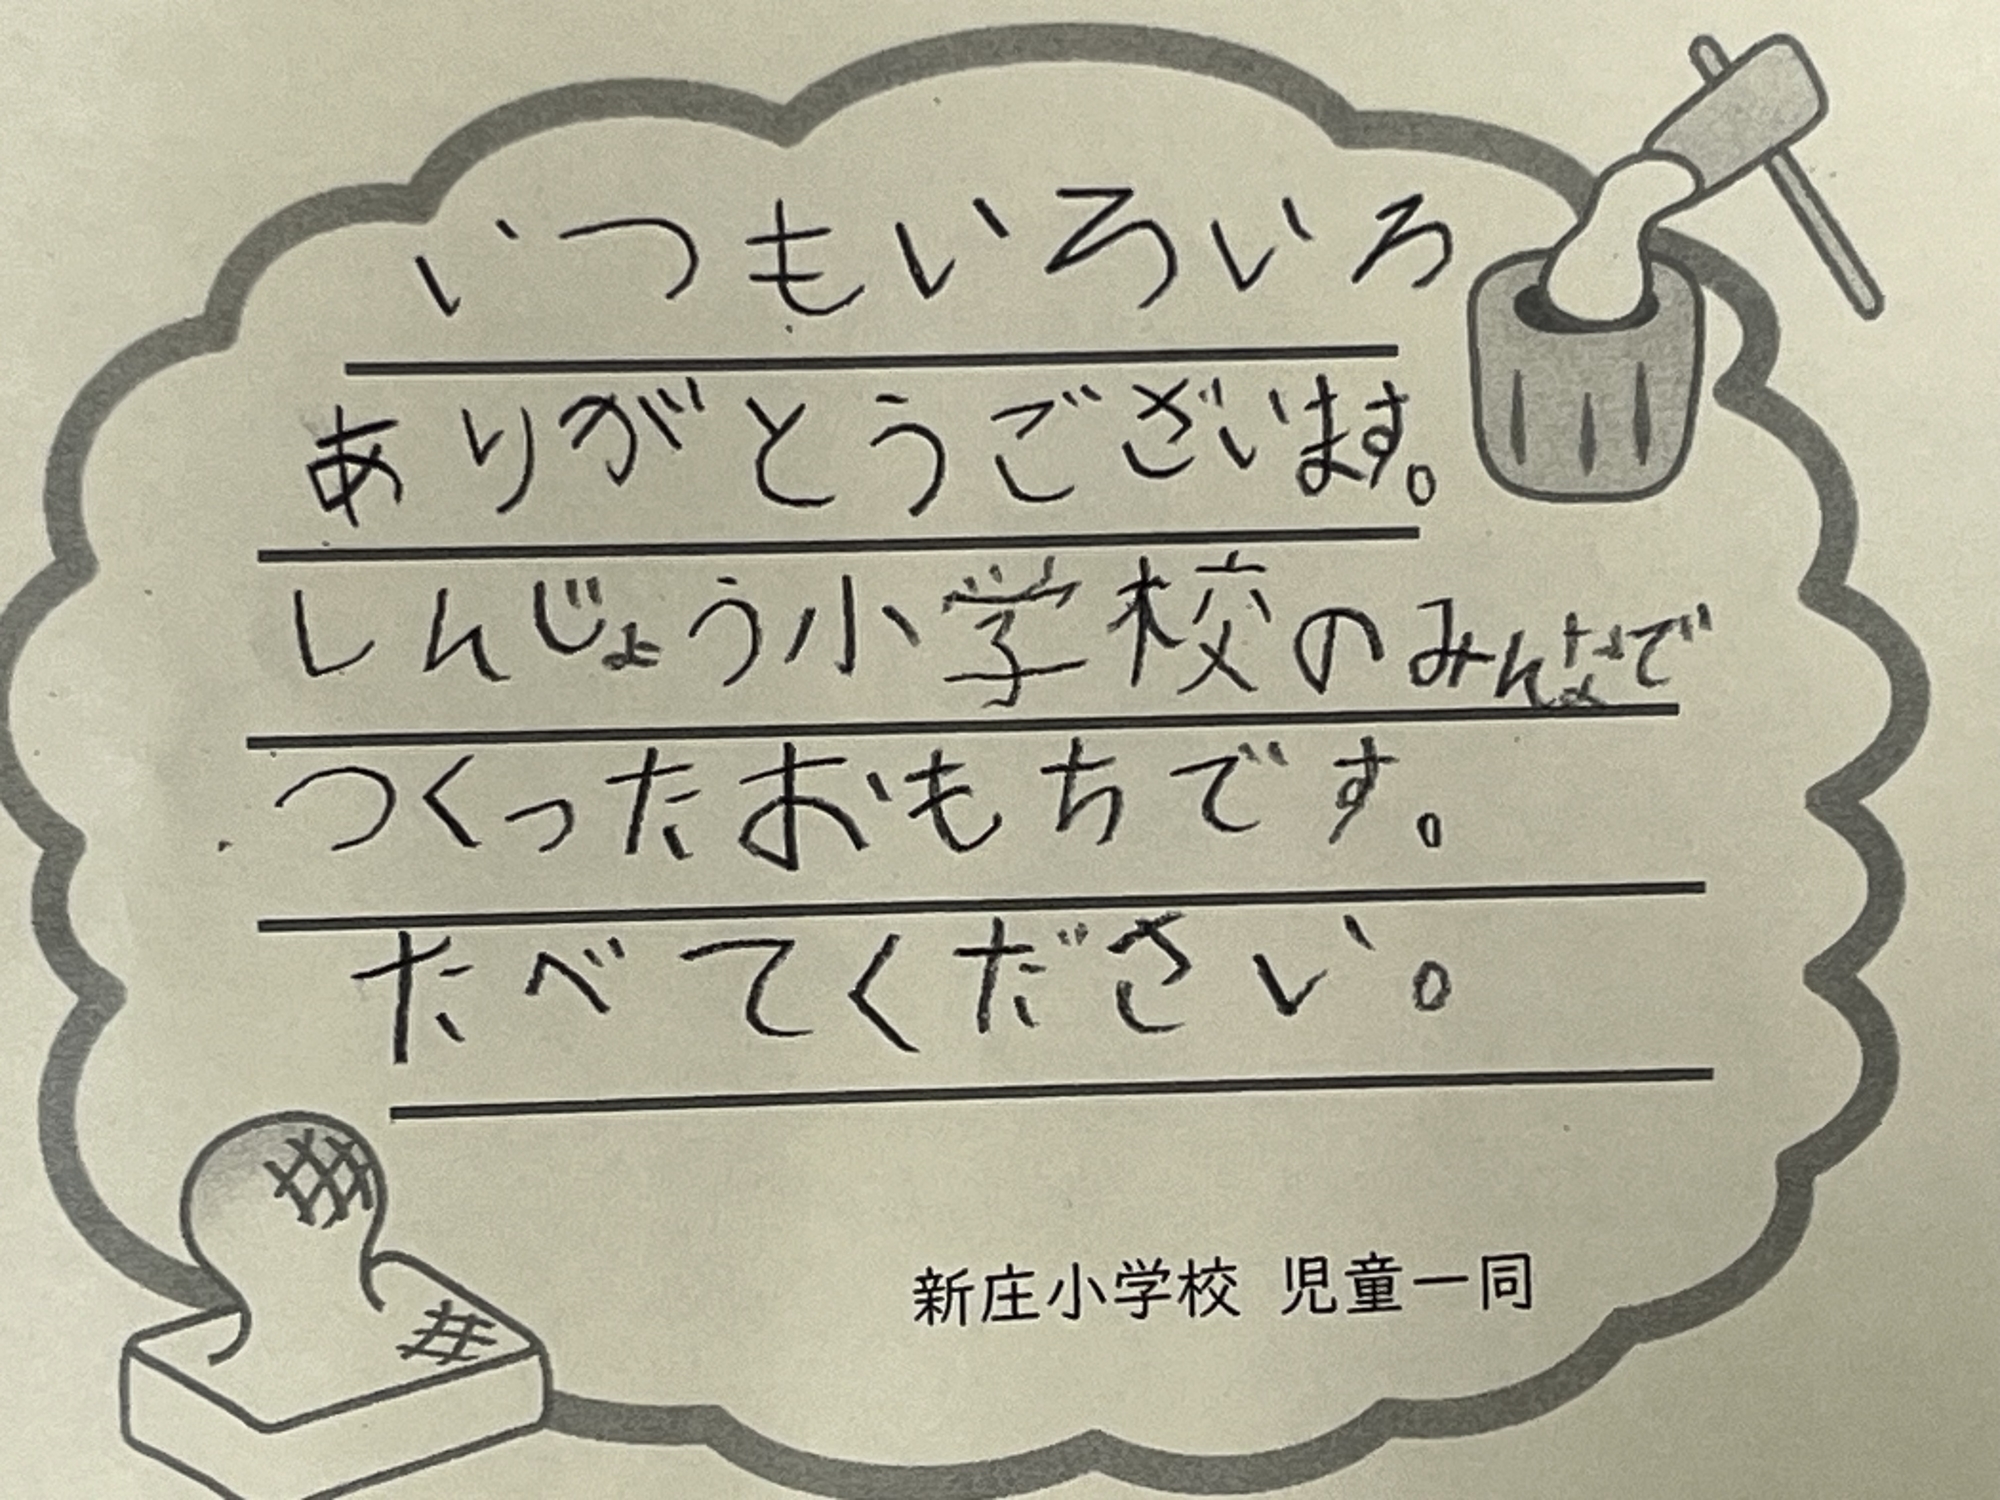 いつもいろいろ
ありがとうございます。
しんじょう小学校のみんなで
つくったおもちです。
たべてください。
新庄小学校 児童一同